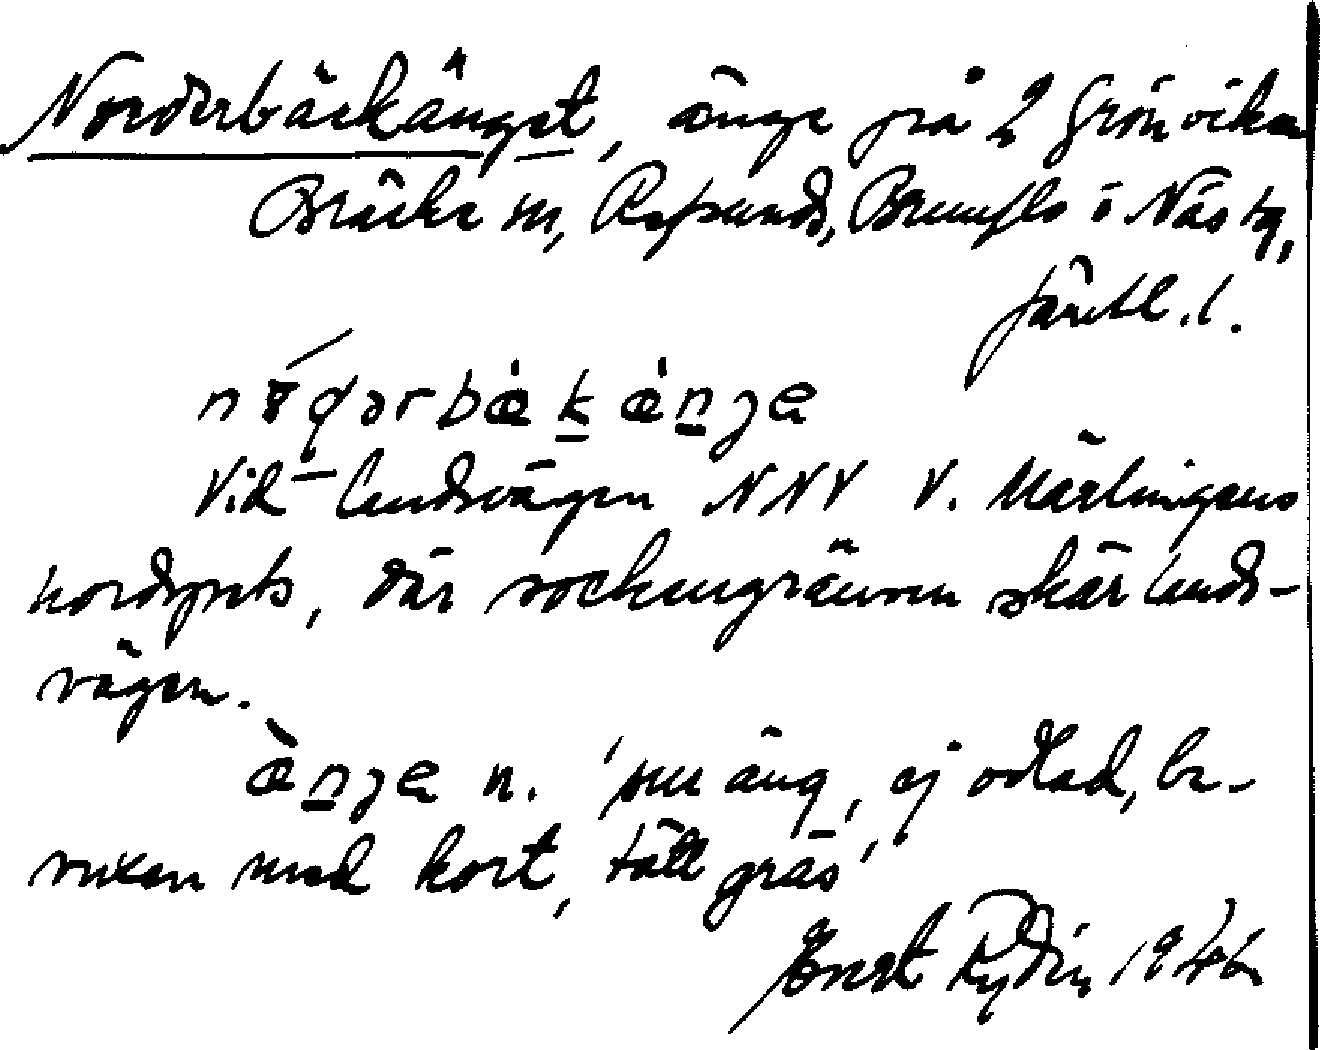 Norderbäckänget, änge på 2 Grönviken
Bräcke sn, Refsunds, Brunflo o Näs tg,
Jämtl. l.
bæ̀kæ̀nge
Vid landsvägen NNV V. Märlingens
nordspets, där sockengränsen skär lands-
vägen.
æ̀nge n. 'sur äng, ej odlad, be-
vuxen med kort, tätt gräs'
Rydin 1946